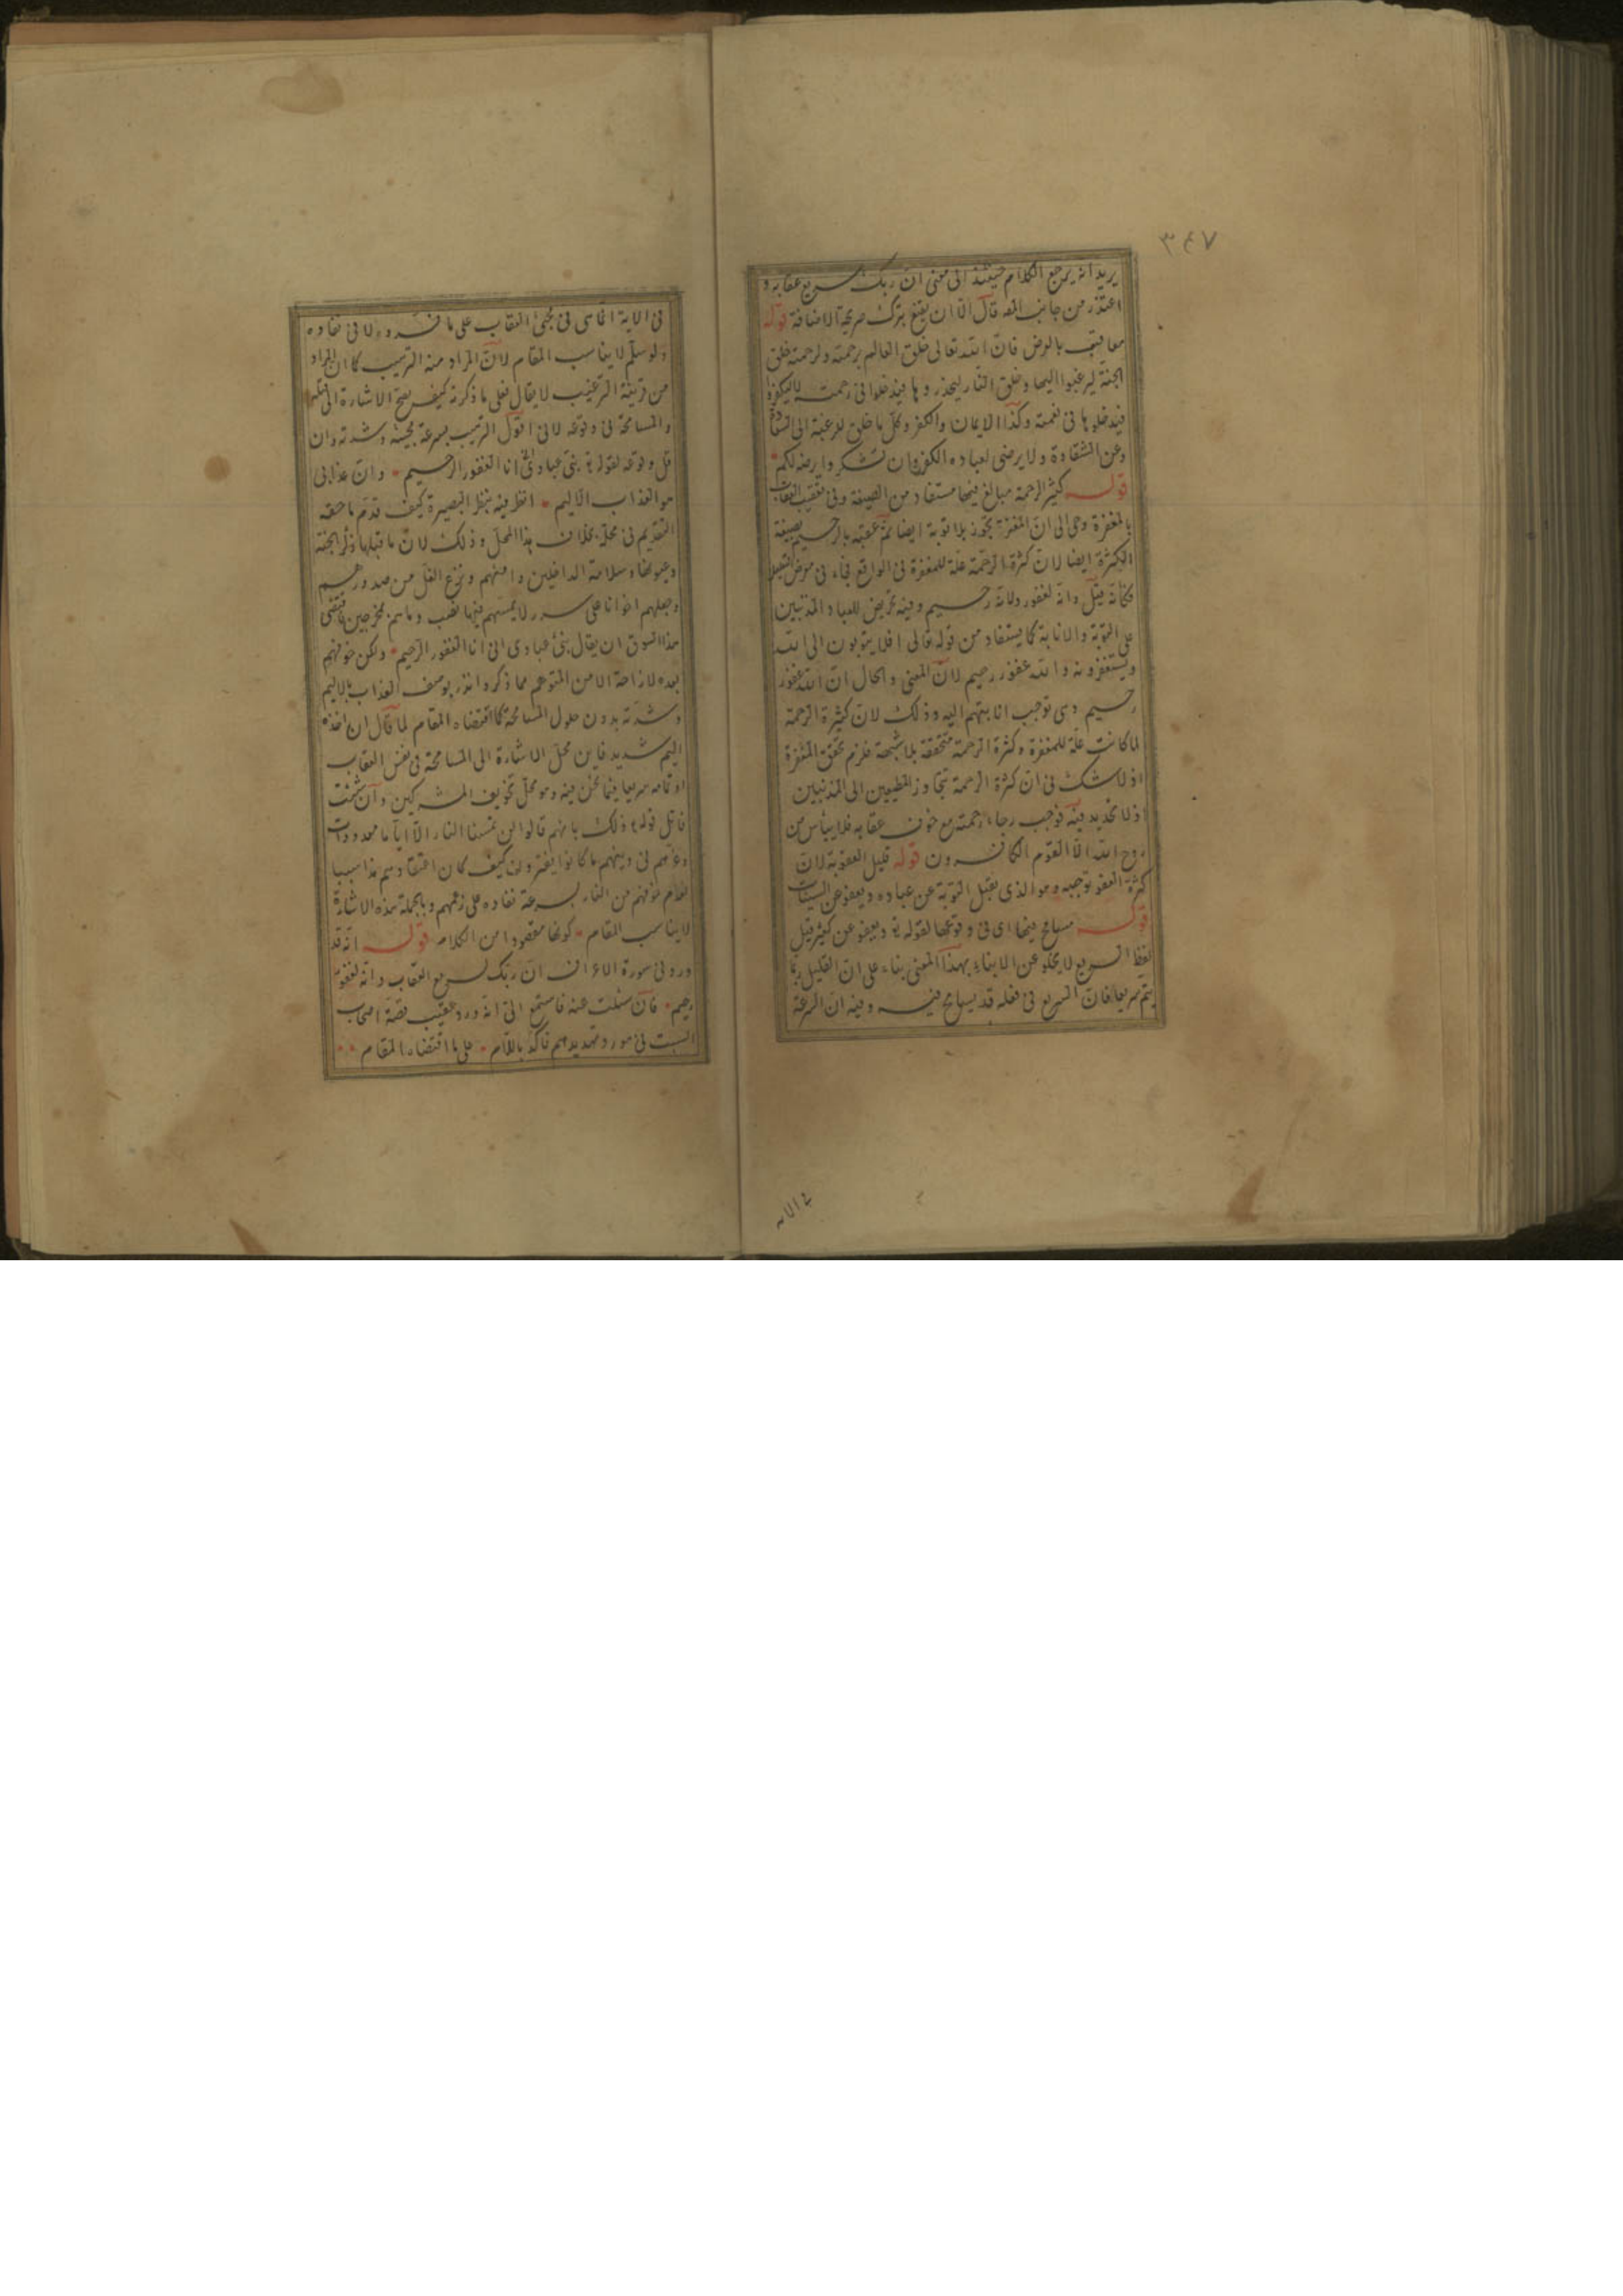 ٣٤٧
يريد انه يرجع الكلام حينئذ الى معنى ان ربك سريع عقابه و
اعتذر من جانب المص قال الا ان يقنع بترك صريحة الاضافة قوله
معاقب بالعرض فان الله تعالى خلق العالم برحمته ولرحمته خلق
الجنة ليرغبوا اليها وخلق النار ليحذروها فيدخلوا فى رحمته لا ليكفروا
فيدخلوها فى نقمته وكذا الايمان والكفر وكل ما خلق للرغبة الى السعادة
وعن الشقاوة ولا يرضى لعباده الكفر وان تشكروا يرضه لكم
قوله كثير الرحمة مبالغ فيها مستفاد من الصيغة وفى تعقيب العقاب
بالمغفرة وحى الى ان المغفرة تجوز بلا توبة ايضا ثم عقبه بالرحيم بصيغة
الكثرة ايضا لان كثرة الرحمة علة للمغفرة فى الواقع فجاء فى معرض التعليل
فكانه قيل وانه لغفور ولانه رحيم وفيه تحريض للعباد المذنبين
على التوبة والانابة كما يستفاد من قوله تعالى افلا يتوبون الى الله
ويستغفرونه والله غفور رحيم لان المعنى والحال ان الله غفور
رحيم وهى توجب انابتهم اليه وذلك لان كثيرة الرحمة
لما كانت علة للمغفرة وكثرة الرحمة متحققة بلا شبهة فلزم تحقق المغفرة
اذ لا شك فى ان كثرة الرحمة تتجاوز المطيعين الى المذنبين
اذ لا تحديد فيه فوجب رجاء رحمته مع خوف عقابه فلا ييأس من
روح الله الا القوم الكافرون قوله قليل العقوبة لان
كثرة العفو توجبه وهو الذى يقبل التوبة عن عباده ويعفو عن السيئات
قوله مسامح فيها اى فى وقوعها لقوله تع ويعفو عن كثير قيل
لفظ السريع لا يخلو عن الانباء بهذا المعنى بناء على ان القليل ربما
يتم سريعا فان السريع فى فعله قد يسامح فيه وفيه ان السرعة
فى الاية
فى الاية انما هى فى مجئ العقاب على ما فسروه لا فى نفاده
ولو سلم لا يناسب المقام لان المراد منه الترهيب كما ان المراد
من قرينة الترغيب لا يقال فعلى ما ذكرته كيف يصح الاشارة الى قلته
والمسامحة فى وقوعه لانى اقول الترهيب بسرعة مجيئه وشدته وان
قل وقوعه لقوله تع نبئ عبادى انى انا الغفور الرحيم وان عذابى
هو العذاب الاليم انظر فيه بنظر البصيرة كيف قدم ما حقه
التقديم فى محله بخلاف هذا المحل وذلك لان ما قبلها ذكر الجنة
وعيونها وسلامة الداخلين وامنهم ونزع الغل من صدورهم
وجعلهم اخوانا على سرر لا يمسهم فيها نصب وما هم بمخرجين فاقتضى
هذا السوق ان يقال نبئ عبادى انى انا الغفور الرحيم ولكن خوفهم
بعده لازاحة الامن المتوهم مما ذكر وانذر بوصف العذاب بالاليم
وشدته بدون حلول المسامحة كما اقتضاه المقام لما قال ان اخذه
اليم شديد فاين محل الاشارة الى المسامحة فى نفس العقاب
او تمامه سريعا فيما نحن فيه وهو محل تخويف المشركين وان شئت
فاتل قوله تع ذلك بانهم قالوا لن تمسنا النار الا اياما معدودات
وغرهم فى دينهم ما كانوا يفترون كيف كان اعتقادهم هذا سببا
لعدم خوفهم من النار بسرعة نفاده على زعمهم وبالجملة هذه الاشارة
لا يناسب المقام كونها مقصودا من الكلام قوله انه قد
ورد فى سورة الاعراف ان ربك لسريع العقاب وانه لغفور
رحيم فان سئلت عنه فاستمع الى انه ورد عقيب قصة اصحاب
السبت فى مورد تهديدهم فاكد باللام على ما اقتضاه المقام